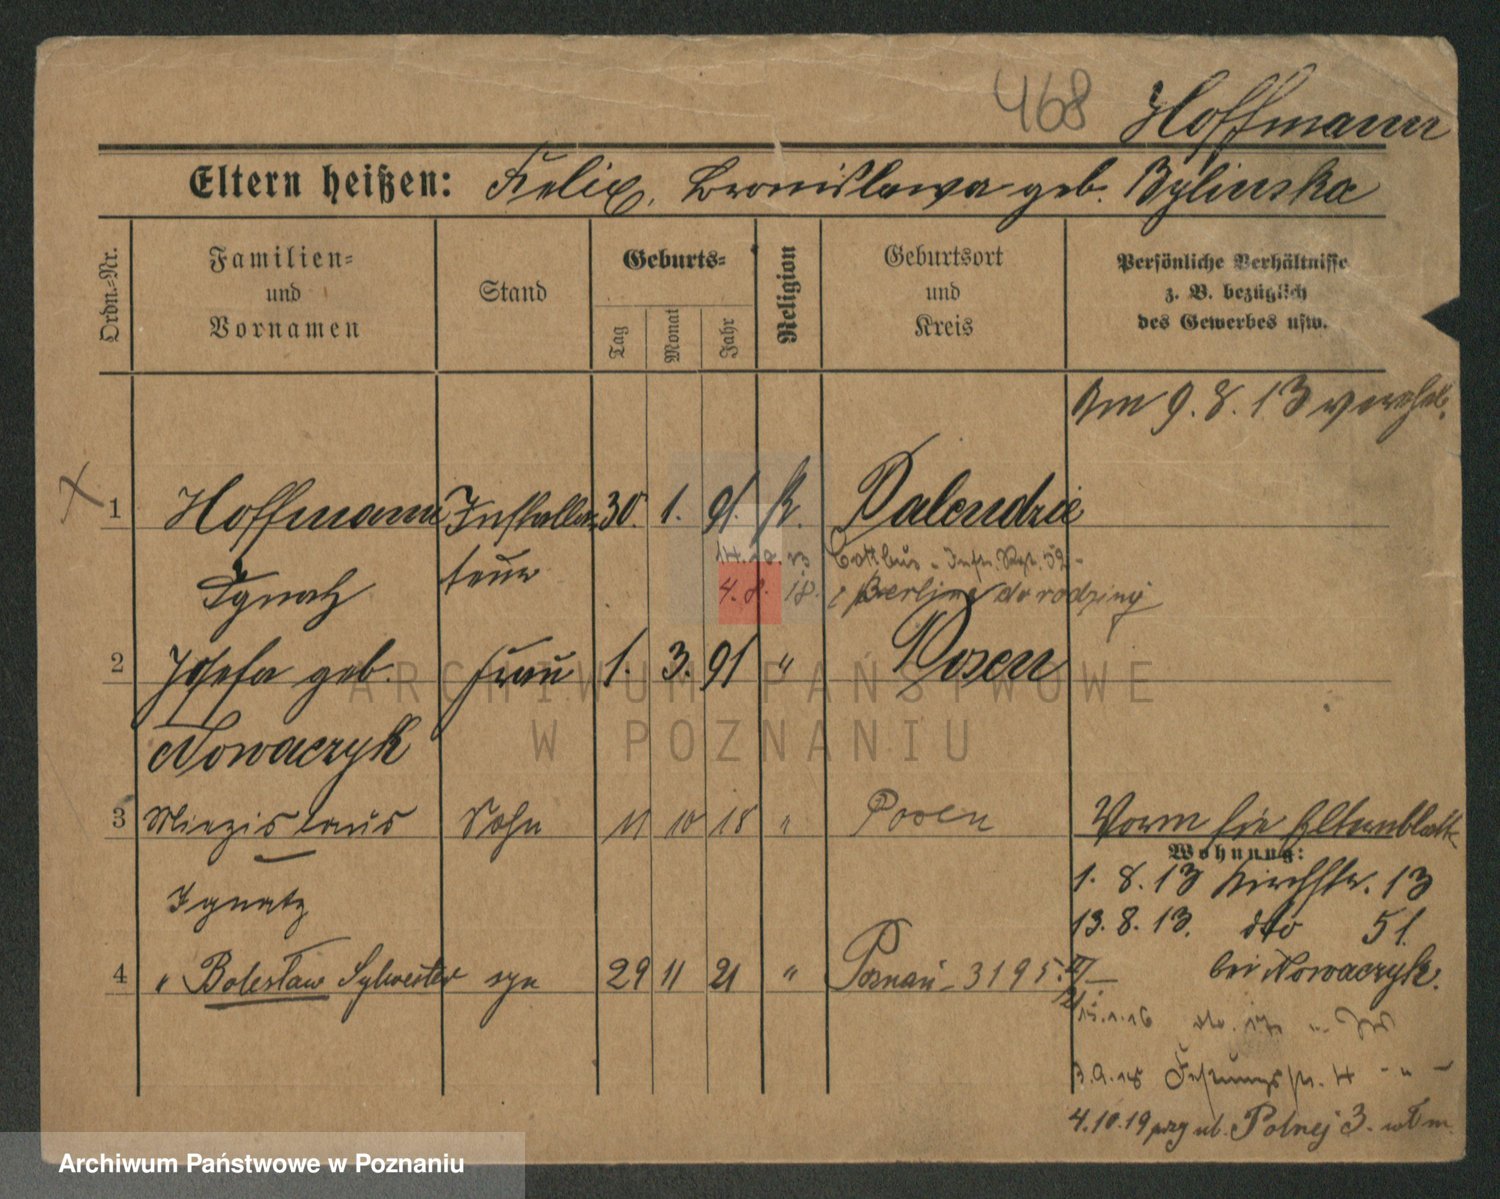 468 Hoffmann
Eltern heißen: Felix, Bronislawa geb. Bylinska
Ordn.-Nr.
Familien-
und
Vornamen
Stand
Geburts-
Tag
Monat
Jahr
Religion
Geburtsort
und
Kreis
Persönliche Verhältnisse
z. B. bezüglich
des Gewerbes usw.
Am 9. 8. 13 verehel.
1 Hoffmann Installa- 30. 1. 91. K. Palendzie
Ignatz teur
14. 10. 13 Cottbus - Inftr. Rgt. 52 -
4. 8. 18. z Berlina do rodziny
2 Josefa geb. Frau 1. 3. 91 " Posen
Nowaczyk
3 Miezislaus Sohn 11 10 18 " Posen
Ignatz
Vorm siehe Elternblatt
Wohnung:
1. 8. 13 Kirchstr. 13
13. 8. 13. dto 51
bei Nowaczyk.
4 " Bolesław Sylwester syn 29 11 21 " Poznań - 3195.
15.1.16
3.9.18 Festungsstr. 4 - " -
4.10.19 przy ul. Polnej 3.
ARCHIWUM PAŃSTWOWE
W POZNANIU
Archiwum Państwowe w Poznaniu